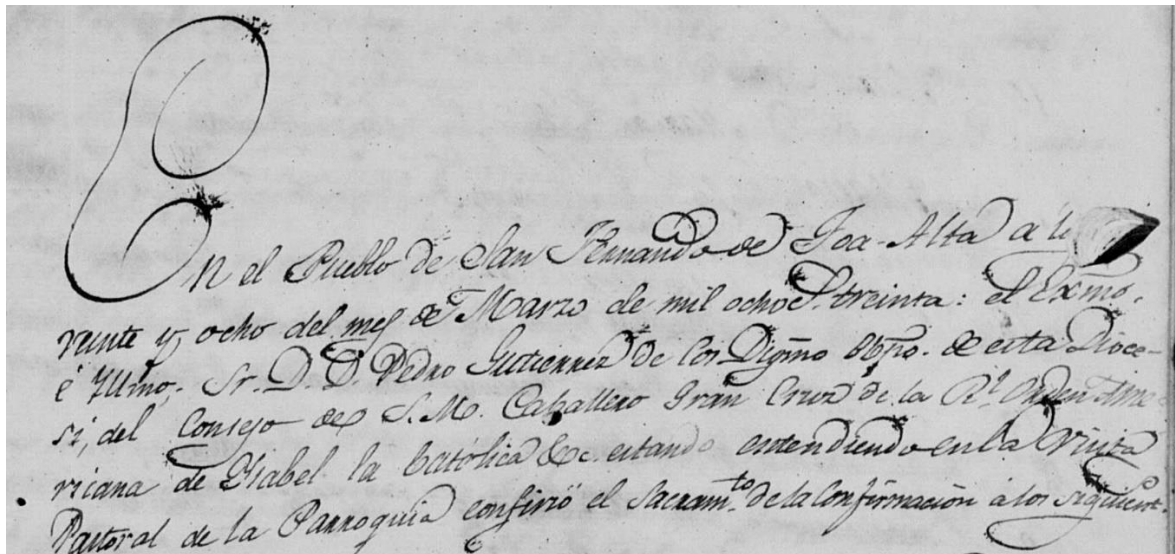 En el Pueblo de San Fernando de Toa-Alta á los
veinte y ocho del mes de Marzo de mil ochocs. treinta: el Exmo.
é Yllmo. Sr. D. D. Pedro Gutierrez de Cos Digmo Obpo. de esta Dioce-
si, del Consejo de S. M. Caballero Gran Cruz de la Rl. Orden Ame
ricana de Ysabel la Católica &c. estando entendiendo en la Visita
Pastoral de la Parroquia confirió el Sacramto. de la Confirmación á los siguient